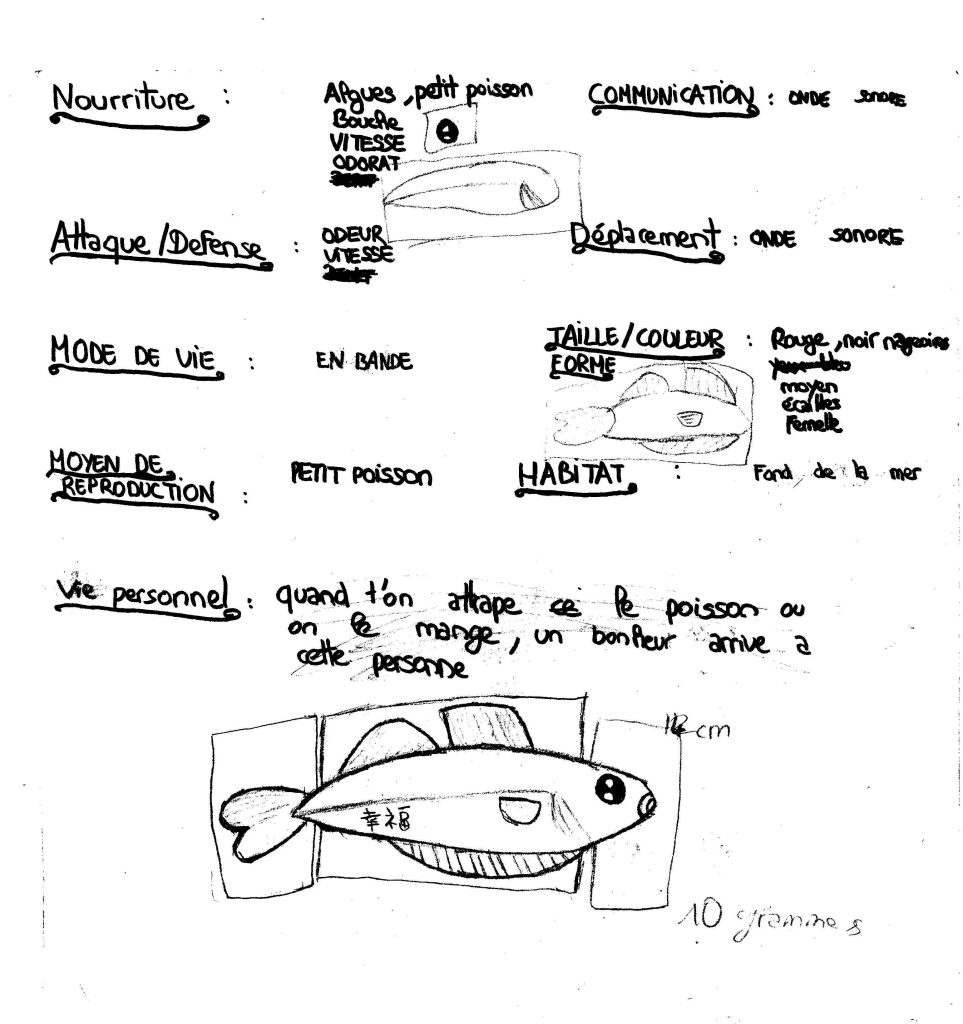 Nourriture :
Algues, petit poisson
Bouche
VITESSE
ODORAT
COMMUNiCATiON : ONDE SONORE
Attaque/Defense :
ODEUR
ViTESSE
Déplacement : ONDE SONORE
MODE DE ViE : EN BANDE
TAiLLE/COULEUR : Rouge, noir nageoires
FORME
moyen
écailles
Femelle
MOYEN DE
REPRODUCTiON :
PETiT POiSSON
HABiTAT : Fond de la mer
Vie personnel : quand t'on attrape ce le poisson ou
on le mange, un bonheur arrive a
cette personne
cm
幸福
10 grammes